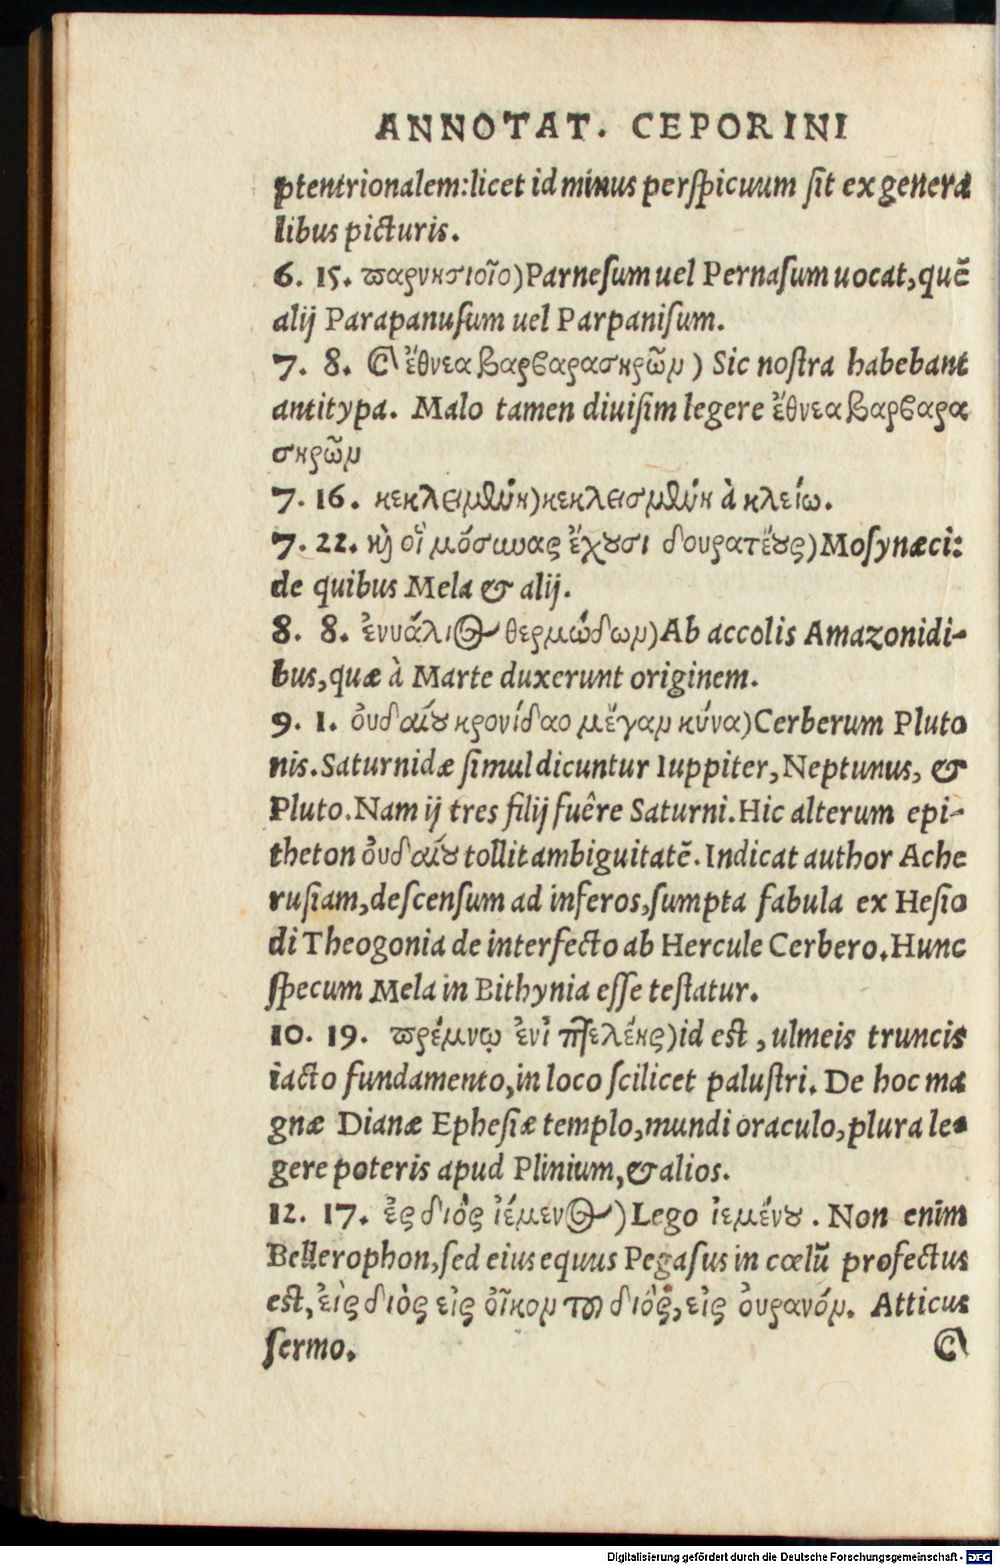 ANNOTAT. CEPORINI
ptentrionalem:licet id minus perſpicuum ſit ex genera
libus picturis.
6. 15. παρνησιοῖο)Parneſum uel Pernaſum uocat,quẽ
alij Parapanuſum uel Parpaniſum.
7. 8. ἔθνεα βαρβαρασκρῶν) Sic noſtra habebant
antitypa. Malo tamen diuiſim legere ἔθνεα βαρβαρα
σκρῶν
7. 16. κεκλειμένη)κεκλεισμένη à κλείω.
7. 22. καὶ οἳ μόσυνας ἔχουσι δουρατέους)Moſynæci:
de quibus Mela & alij.
8. 8. ἐνυάλιος θερμώδων)Ab accolis Amazonidi-
bus,quæ à Marte duxerunt originem.
9. 1. οὐδαίου κρονίδαο μέγαν κύνα)Cerberum Pluto
nis.Saturnidæ ſimul dicuntur Iuppiter,Neptunus, &
Pluto.Nam ij tres filij fuêre Saturni.Hic alterum epi-
theton οὐδαίου tollit ambiguitatẽ.Indicat author Ache
ruſiam,deſcenſum ad inferos,ſumpta fabula ex Heſio
di Theogonia de interfecto ab Hercule Cerbero.Hunc
ſpecum Mela in Bithynia eſſe teſtatur.
10. 19. πρέμνῳ ἐνὶ πτελέης)id eſt , ulmeis truncis
iacto fundamento,in loco ſcilicet paluſtri. De hoc ma
gnæ Dianæ Epheſiæ templo,mundi oraculo,plura le-
gere poteris apud Plinium,& alios.
12. 17. ἐς διὸς ἱέμενος)Lego ἱεμένου . Non enim
Bellerophon,ſed eius equus Pegaſus in cœlũ profectus
eſt, εἰς διὸς εἰς οἶκον τοῦ διός, εἰς οὐρανόν. Atticus
ſermo.